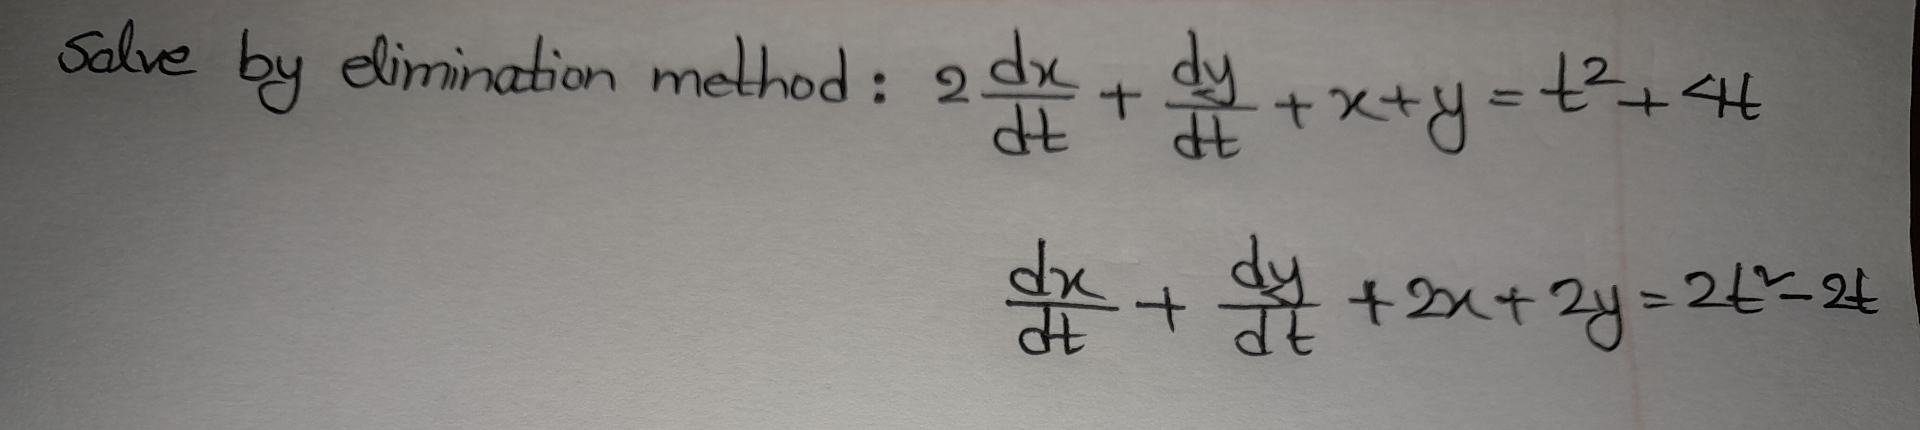 Solve by elimination method: 2 dx/dt + dy/dt + x + y = t² + 4t
dx/dt + dy/dt + 2x + 2y = 2t² - 2t